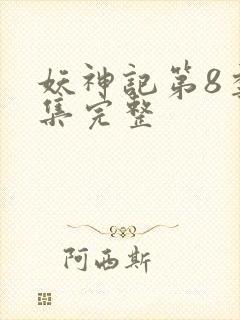 妖神記第8季
集完整
阿西斯